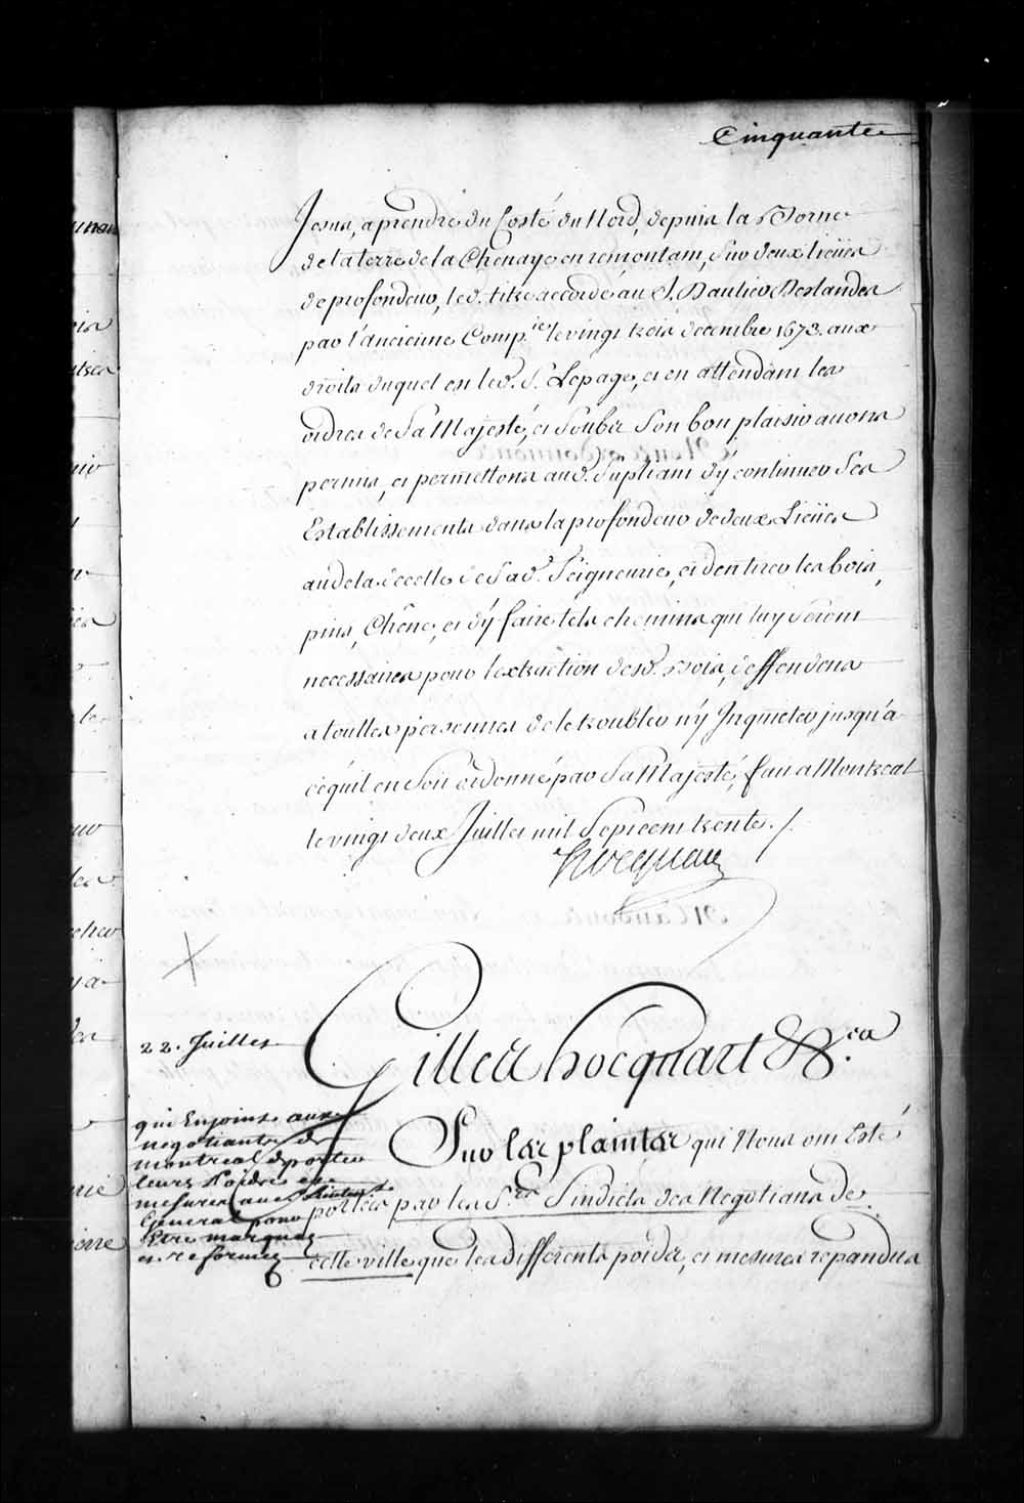 Cinquante
Jesus, aprendre du Costé du Nord, depuis la Borne
de la terre de la Chenaye en remontant, sur deux lieües
de profondeur, led. titre accordé au S. Daulier Deslandes
par l'ancienne Comp.ie le vingt trois decembre 1673. aux
droits duquel est led. S. Lepage, et en attendant les
ordres de Sa Majesté, et Soubz Son bon plaisir avons
permis, et permettons aud. Supliant d'ÿ continuer Ses
Establissements dans la profondeur de deux Lieües
audela de celle de Sad. Seigneurie, et d'en tirer les bois,
pins, Chêne, et d'ÿ faire tels chemins qui luy seront
necessaires pour l'extraction desd. Bois, deffendons
a touttes personnes de le troubler n'ÿ Inquieter jusqu'a
cequil en Soit ordonné par Sa Majesté, fait a Montreal
le vingt deux Juillet mil Sept cent trente./.
Hocquart
22. Juillet
qui Enjoint aux
negotiants de
montreal de porter
leurs Poids et
mesures au
General pour
Etre marquez
et reformez
Gilles hocquart &c.ea
Sur les plaintes qui Nous ont Esté
portées par les S.rs Sindicts des Negotians de
cette ville que les differents poids, et mesures repandus